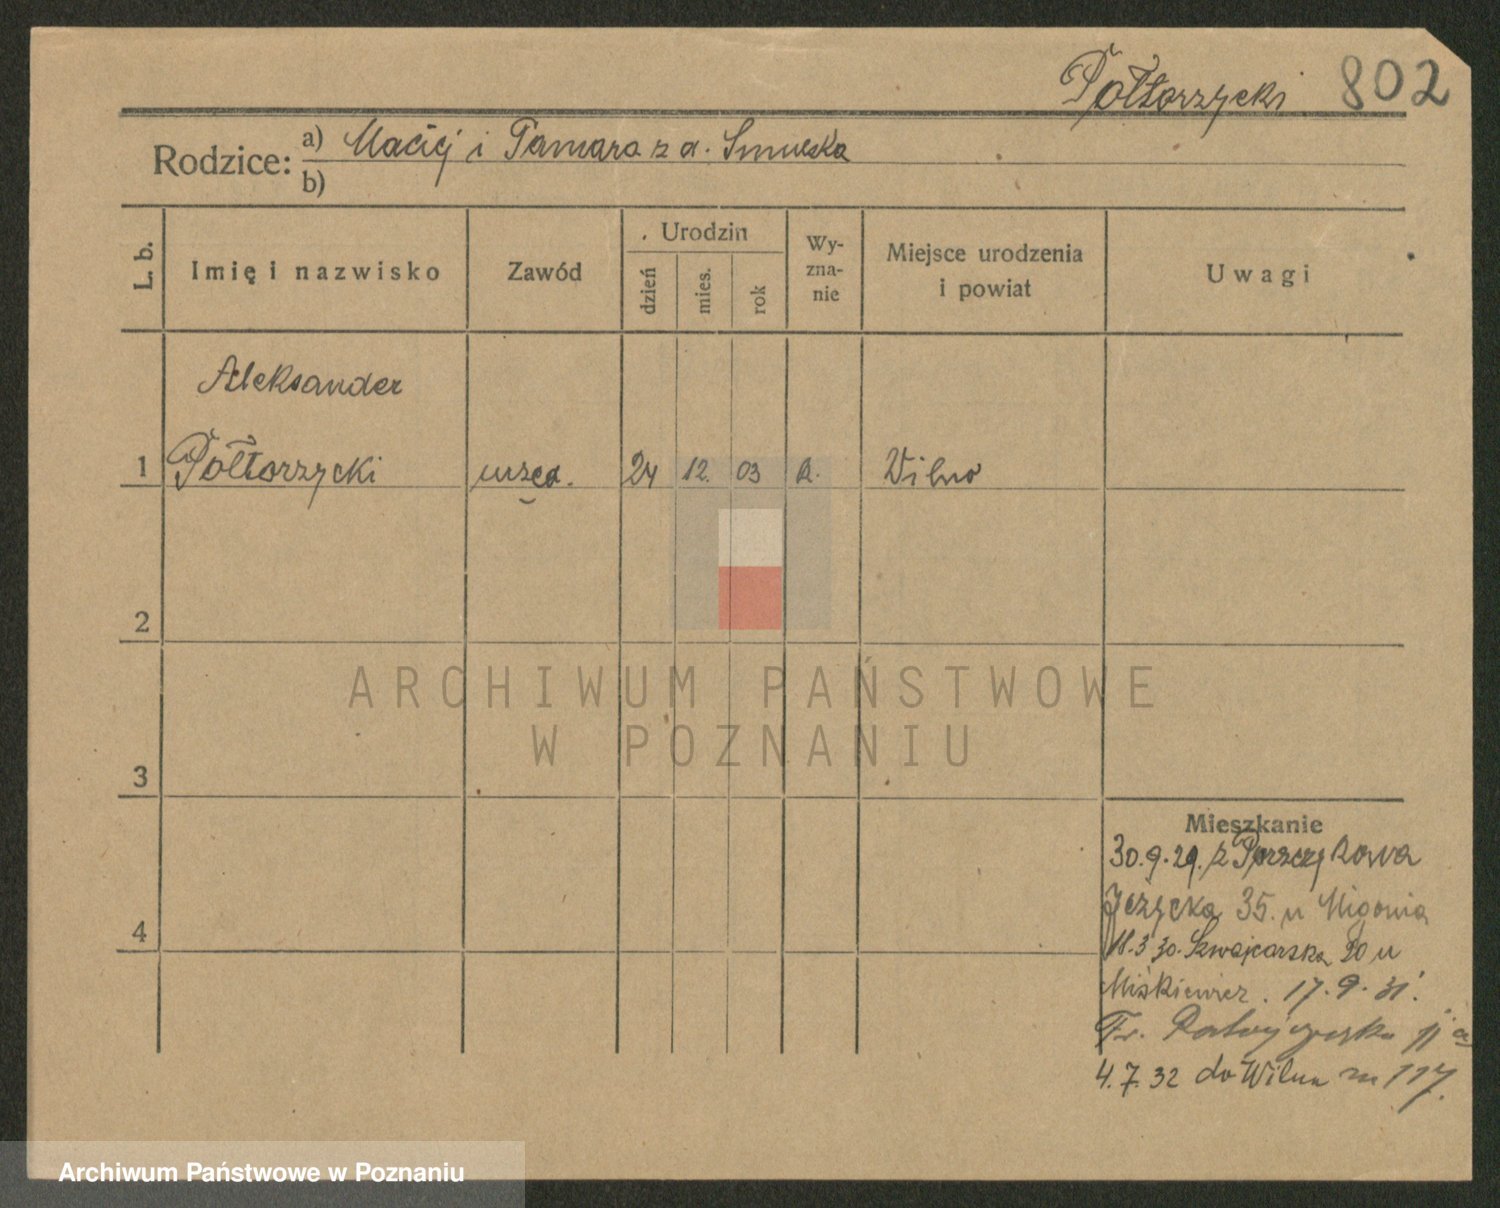 Półtorzycki 802
Rodzice: a) Maciej i Tamara z d. Smulska
b)
L. b.
Imię i nazwisko
Zawód
Urodzin
dzień
mies.
rok
Wy-
zna-
nie
Miejsce urodzenia
i powiat
Uwagi
Aleksander
1 Półtorzycki urzęd. 24 12. 03 R. Wilno
2
3
4
Mieszkanie
30.9.29. z
Jeżycka 35. u Migonia
18.3 30. Szwajcarska 20 u
Miśkiewicz. 17.9.31.
Fr. Ratajczaka 11 a
4.7.32 do Wilna 117.
ARCHIWUM PAŃSTWOWE
W POZNANIU
Archiwum Państwowe w Poznaniu